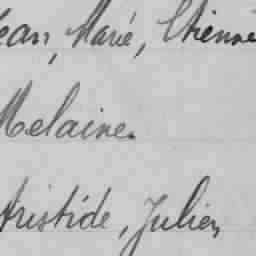 Jean, Marie, Etienne
Melaine.
Aristide, Julien